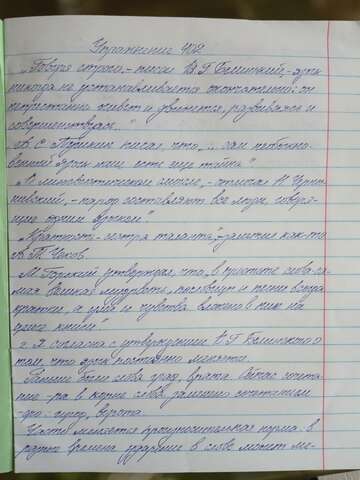 Упражнение 402
„Говоря строго,- писал В.Г Белинский,- язык
никогда не устанавливается окончательно: он
непрестанно живёт и движется, развиваясь и
совершенствуясь..."
А.С Пушкин писал что „... сам необыкно-
венный язык наш есть ещё тайна"
„В лингвистическом смысле, - отмечал Н Черны-
шевский, - народ составляют все люди, говоря-
щие одним языком"
„Краткость-сестра таланта",-заметил как-то
А.П. Чехов.
М.Горький утверждал, что в простоте слова са-
мая великая мудрость, пословицы и песни всегда
кратки, а ума и чувства вложено в них на
целые книги.
Я согласна с утверждением В Г Белинского о
том, что язык постоянно меняется.
Раньше были слова град, врата. Сейчас сочета
ние -ра в корне слова заменило сочетание
-оро: город, ворота.
Часто меняется произносительная норма: в
разное время ударение в слове может ме-